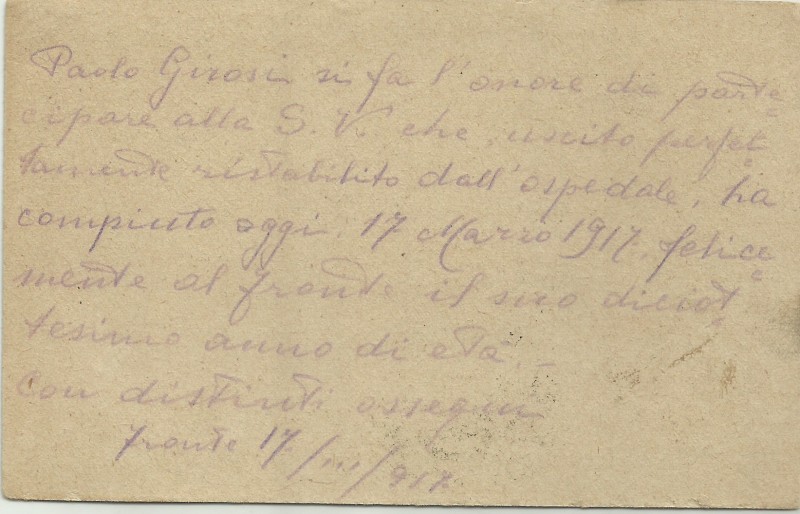 Paolo Girosi si fa l'onore di parte=
cipare alla S. V. che, uscito perfet=
tamente ristabilito dall'ospedale, ha
compiuto oggi, 17 Marzo 1917, felice=
mente al fronte il suo diciot=
tesimo anno di età —
Con distinti ossequi
fronte 17/III/917